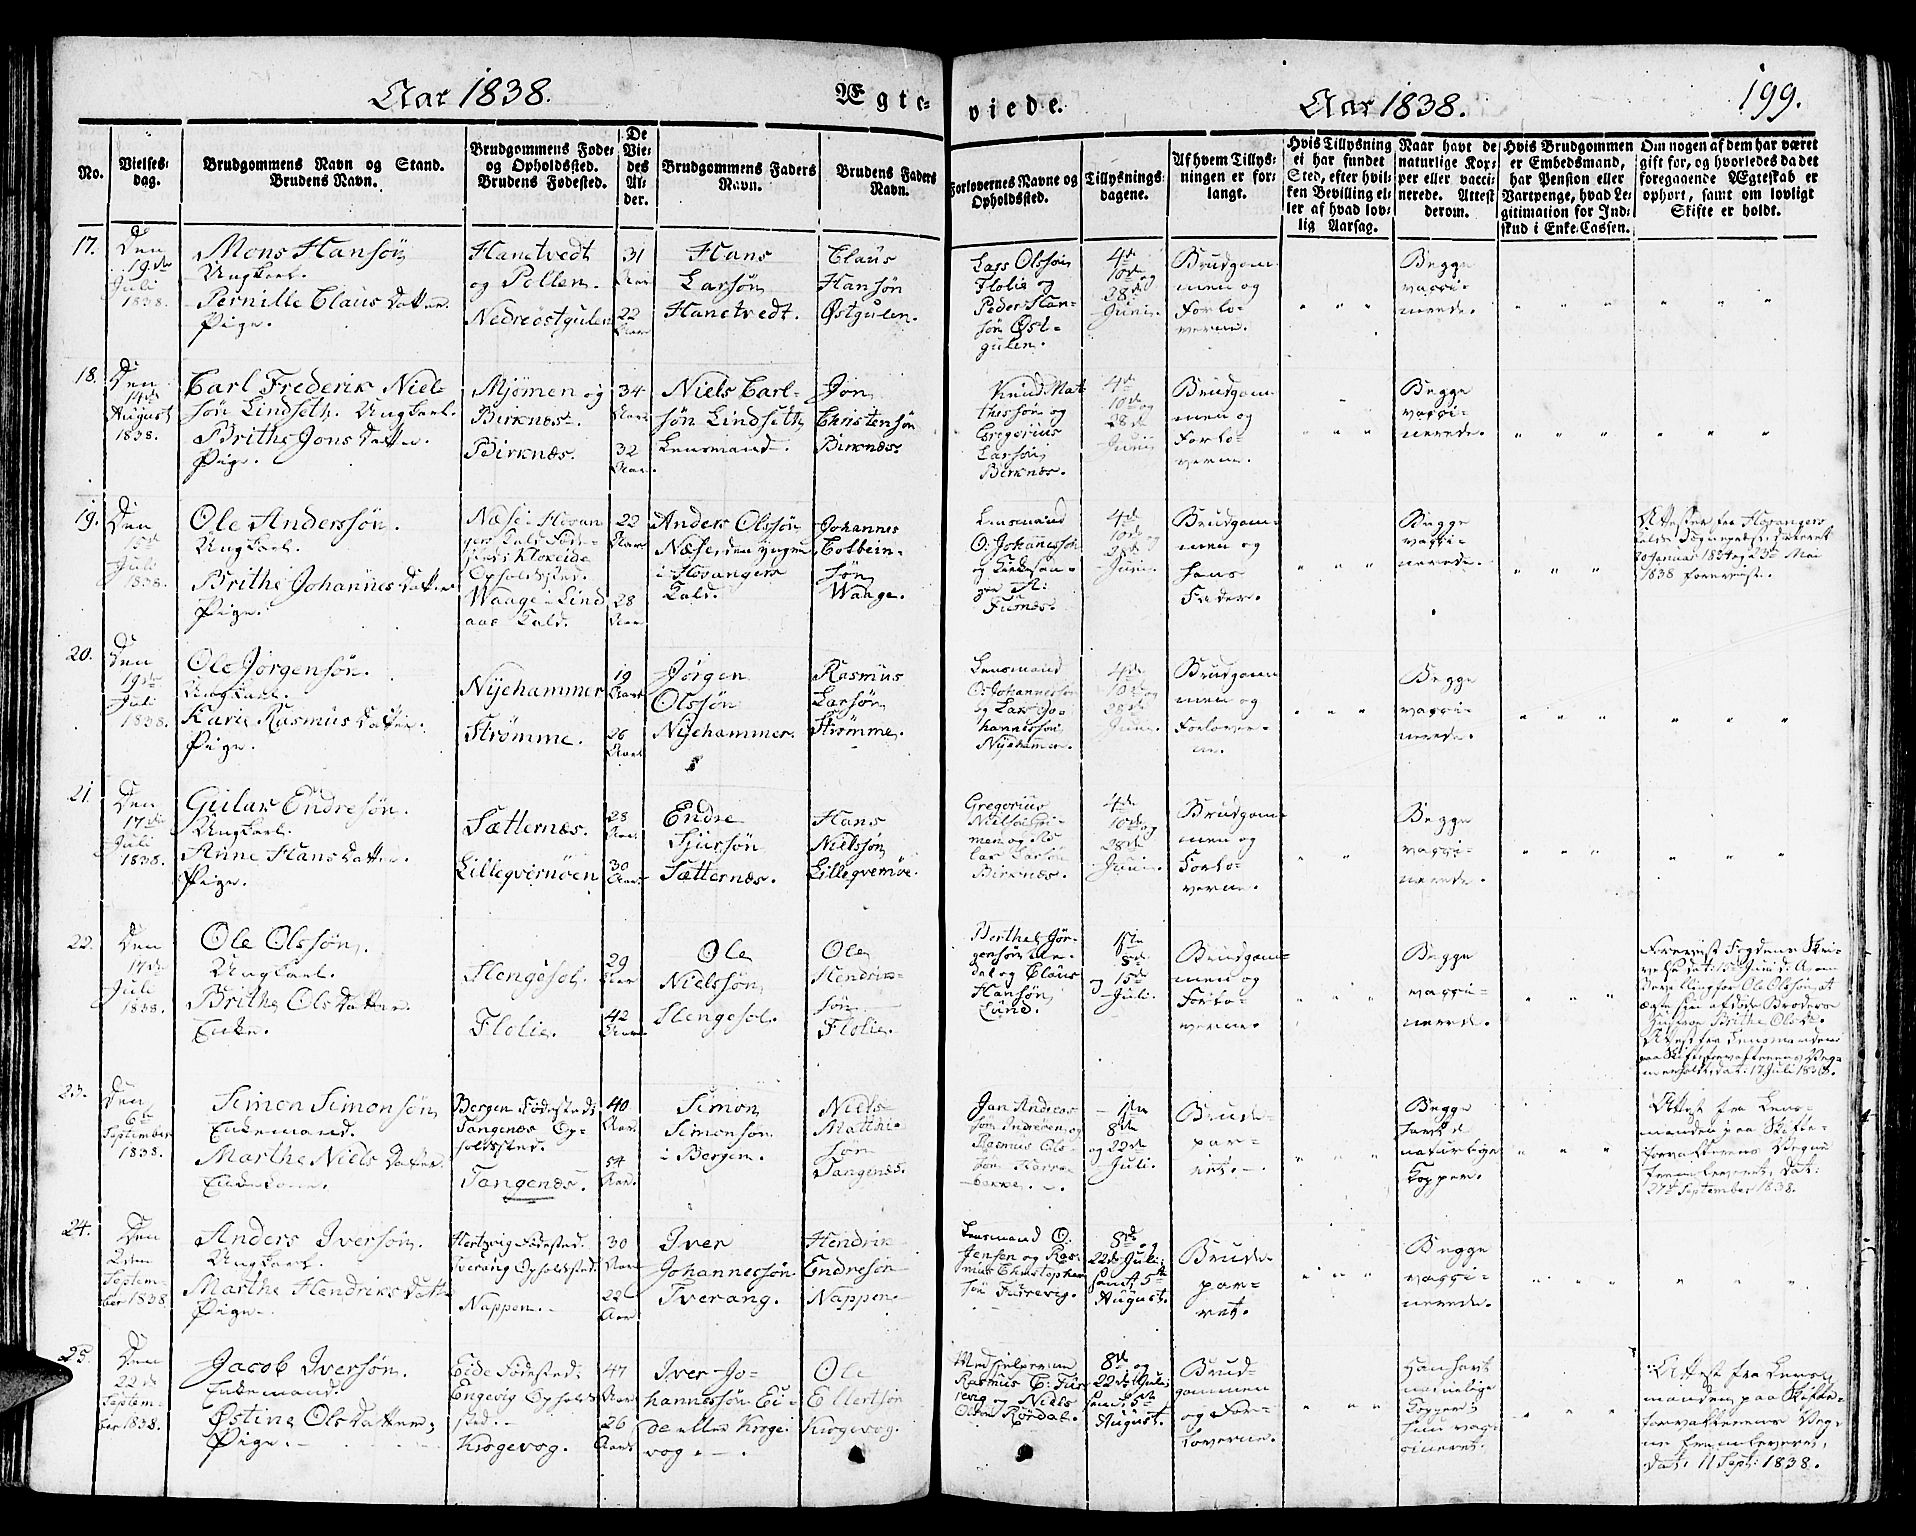 Aar 1838.
Ægte-
viede.
Aar 1838.
199.
No.
Vielses-
dag.
Brudgommens Navn og Stand.
Brudens Navn.
Brudgommens Føde-
og Opholdssted.
Brudens Fødested.
De
Vie-
des
Al-
der.
Brudgommens Faders
Navn.
Brudens Faders
Navn.
Forlovernes Navne og
Opholdssted.
Tillysnings-
dagene.
Af hvem Tillys-
ningen er for-
langt.
Hvis Tillysning
ei har fundet
Sted, efter hvil-
ken Bevilling el-
ler af hvad lov-
lig Aarsag.
Naar havt de
naturlige Kop-
per eller vacci-
nerede. Attest
derom.
Hvis Brudgommen
er Embedsmand,
har Pension eller
Vartpenge, hvad Le-
gitimation for Ind-
skud i Enke-Cassen.
Om nogen af dem har været
gift for, og hvorledes da det
foregaaende Ægteskab er
ophort, samt om lovligt
Skifte er holdt.
17.
Den
19de
Juli
1838.
Mons Hansøn
Ungkarl.
Pernille Claus Datter.
Pige.
Hanetvedt
og Pollen.
Nedreøstgulen
31
Aar
22
Aar.
Hans
Larsøn
Hanetvedt.
Claus
Hansøn
Østgulen.
Lars Olsøn
Flolie og
Peder Han-
søn Øst-
gulen.
4de
10de og
28de
Juni.
Brudgom-
men og
Forlo-
verne.
Begge
vacci-
nerede.
18.
Den
14de
August
1838.
Carl Frederik Niel-
søn Lindseth. Ungkarl.
Brithe Jons Datter.
Pige.
Mjømen og
Birknæs.
Birknæs.
34
Aar.
32
Aar.
Niels Carl-
søn Lindseth
Lensmand.
Jon
Christensøn
Birknæs.
Knud Mat-
thessøn og
Gregorius
Larsøn
Birknæs.
4de
10de og
28de
Juni
Brudgom-
men og
Forlo-
verne.
Begge
vacci-
nerede.
19.
Den
15de
Juli
1838.
Ole Anderssøn.
Ungkarl.
Brithe Johannes Datter
Pige.
Opholdssted.
Waage i Lind
aas Kald.
22
Aar.
28
Aar
Anders Olssøn
Næse, den yngre
i Hosangers
Kald.
Johannes
Colbein-
søn
Waage.
Lensmand
O. Johannessøn
Furnæs.
4de
10de og
28de
Juni
Brudgom-
men og
hans
Fader.
Begge
vacci-
nerede.
1838 foreviist.
20.
Den
19de
Juli
1838.
Ole Jørgensøn.
Ungkarl.
Karie Rasmus Datter.
Pige.
Nijehammer
Strømme.
19
Aar
26
Aar
Jørgen
Olssøn
Nijehammer.
Rasmus
Larsøn
Strømme.
Lensmand
O. Johannessøn
og Lars Jo-
hannessøn
Nijehammer.
4de
10de og
28de
Juni.
Brudgom-
men og
Forlover-
ne.
Begge
vacci-
nerede.
21.
Den
17de
Juli
1838.
Gulas Endresøn.
Ungkarl.
Anne Hans Datter.
Pige.
Sætternæs.
Lilleqvernøen
28
Aar.
30
Aar.
Endre
Sjursøn
Sætternæs.
Hans
Nielssøn
Lilleqvernøe.
Gregorius
Larsøn
Birknæs.
4de
10de og
28de
Juni.
Brudgom-
men og
Forlo-
verne.
Begge
vacci-
nerede.
22.
Den
17de
Juli
1838.
Ole Olssøn.
Ungkarl.
Brithe Ols Datter.
Enke.
Hengesol.
Flolie.
29
Aar
42
Aar.
Ole
Nielssøn
Hengesol.
Ole
Hendrik-
søn
Flolie.
Berthel Jør-
gensøn
og Claus
Hansøn
Lune.
1ste
8de
og 15de
Juli.
Brudgom-
men og
Forlo-
verne.
Begge
vacci-
nerede.
Foreviist Fogdens Skri-
velse dat: 15de Juni
Bevilling for Ole Olssøn at
Brithe Olsd.
Attest fra Lensmanden
dat: 17 Juli 1838.
23.
Den
6te
September
1838.
Simon Simonsøn
Enkemand.
Marthe Niels Datter.
Enkekone.
Bergen Fødested:
Tangenæs Op-
holdssted.
Tangenæs.
40
Aar.
54
Aar.
Simon
Simonsøn
i Bergen.
Niels
Matthi-
søn
Tangenæs.
Jan Andreas
Rasmus Ols-
søn
1ste
8de
og 22de
Juli.
Brude-
par-
ret.
Begge
havt de
naturlige
Kopper.
Attest fra Lens-
manden paa Skifte-
forvalterens Vegne
fremleveret, dat:
27de September 1838.
24.
Den
2den
Septem-
ber 1838
Anders Iversøn.
Ungkarl.
Marthe Hendriks Datt-
Pige.
Hertzvig Fødested.
Tverang Opholdssted.
Nappen.
30
Aar
22
Aar
Iver
Johannessøn
Tverang.
Hendrik
Endresøn
Nappen.
Lensmand O.
Jensen og Ras-
mus Christopher-
søn Furevig.
8de og
22de Juli
samt 5te
August.
Brude-
par-
ret.
Begge
vacci-
nerede.
25.
Den
22de
Septem-
ber 1838.
Jacob Iversøn.
Enkemand.
Østine Ols Datter,
Pige.
Eide Fødested:
Engevig Opholds-
sted.
Krogevog.
47
Aar
26
Aar
Iver Jo-
hannessøn Ei-
de eller Kroge-
vog.
Ole
Ellertsøn
Krogevog.
Medhjelperne
Rasmus C. Fur-
evig og Niels
Rørdal.
8de og
22de Juli
samt 5te
August.
Brud-
gommen
og For-
loverne.
Han havt
naturlige
Kopper,
hun vac-
cineret.
Attest fra Lens-
manden paa Skifte-
forvalterens Veg-
ne fremleveret,
dat: 11 Sept: 1838.